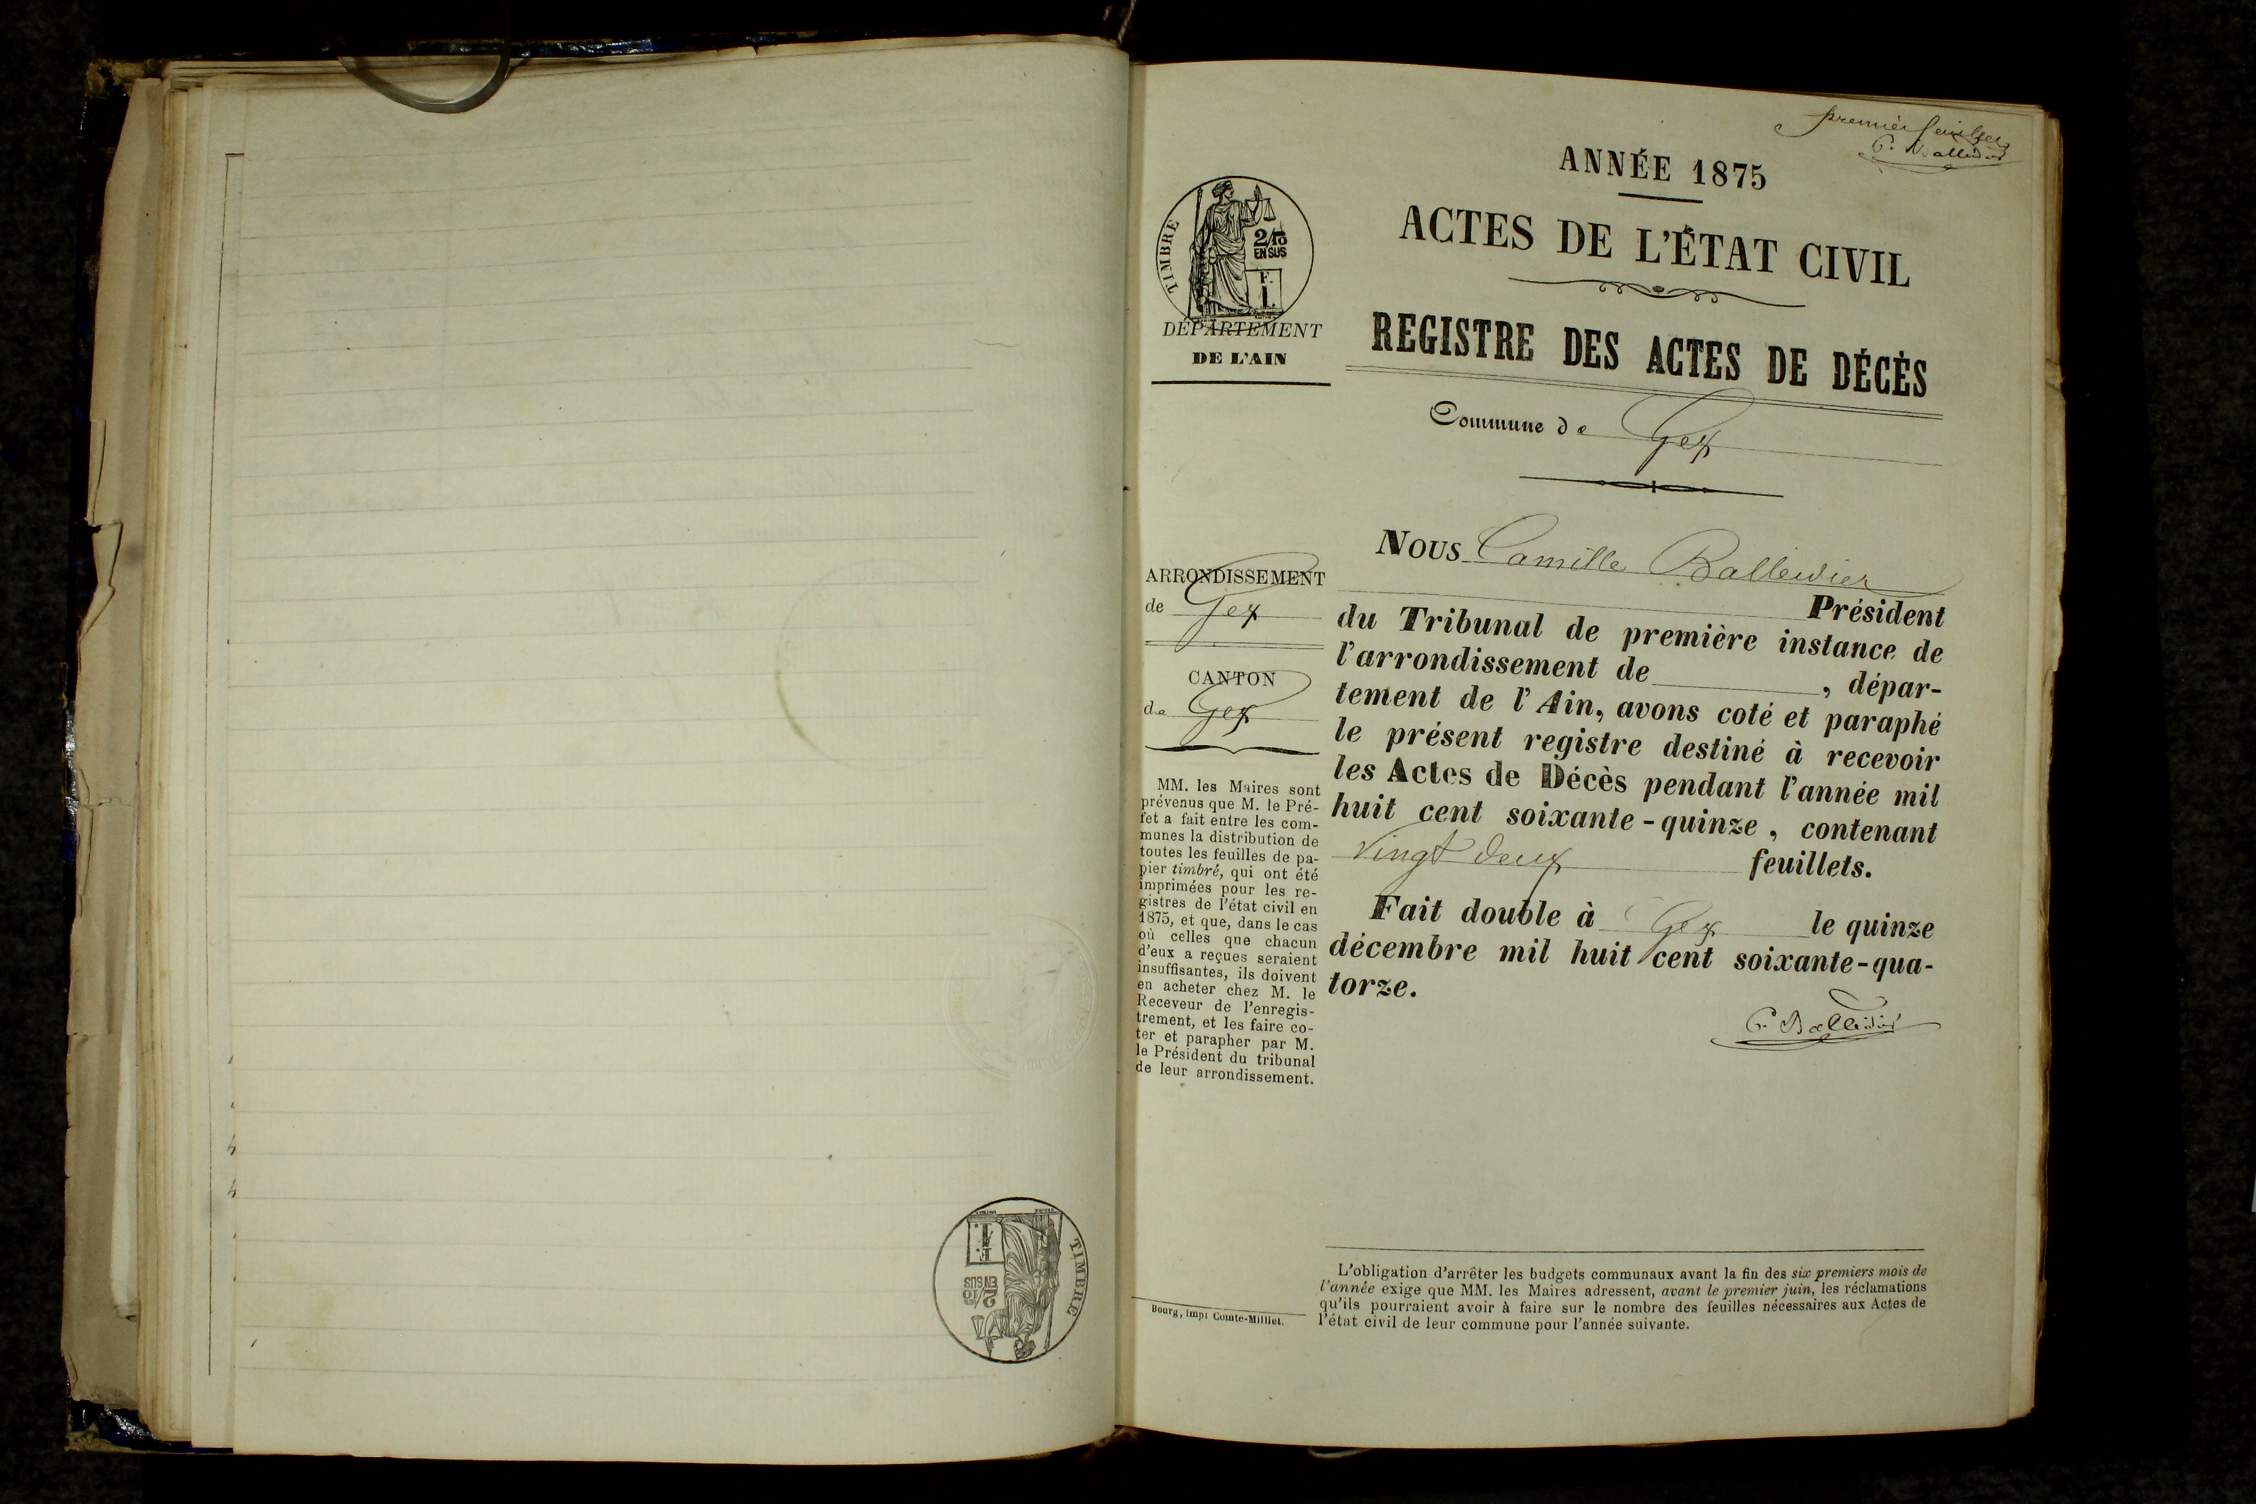 premier feuillet
C. Balleidier
ANNÉE 1875
ACTES DE L'ÉTAT CIVIL
REGISTRE DES ACTES DE DÉCÈS
Commune de Gex
TIMBRE
2/10
EN SUS
F.
1.
DÉPARTEMENT
DE L'AIN
ARRONDISSEMENT
de Gex
CANTON
de Gex
MM. les Maires sont
prévenus que M. le Pré-
fet a fait entre les com-
munes la distribution de
toutes les feuilles de pa-
pier timbré, qui ont été
imprimées pour les re-
gistres de l'état civil en
1875, et que, dans le cas
où celles que chacun
d'eux a reçues seraient
insuffisantes, ils doivent
en acheter chez M. le
Receveur de l'enregis-
trement, et les faire co-
ter et parapher par M.
le Président du tribunal
de leur arrondissement.
Bourg, impr Comte-Milliet.
Nous Camille Balleidier
Président
du Tribunal de première instance de
l'arrondissement de , dépar-
tement de l'Ain, avons coté et paraphé
le présent registre destiné à recevoir
les Actes de Décès pendant l'année mil
huit cent soixante-quinze, contenant
vingt deux feuillets.
Fait double à Gex le quinze
décembre mil huit cent soixante-qua-
torze.
C. Balleidier
L'obligation d'arrêter les budgets communaux avant la fin des six premiers mois de
l'année exige que MM. les Maires adressent, avant le premier juin, les réclamations
qu'ils pourraient avoir à faire sur le nombre des feuilles nécessaires aux Actes de
l'état civil de leur commune pour l'année suivante.
TIMBRE
2/10
EN SUS
F.
1.